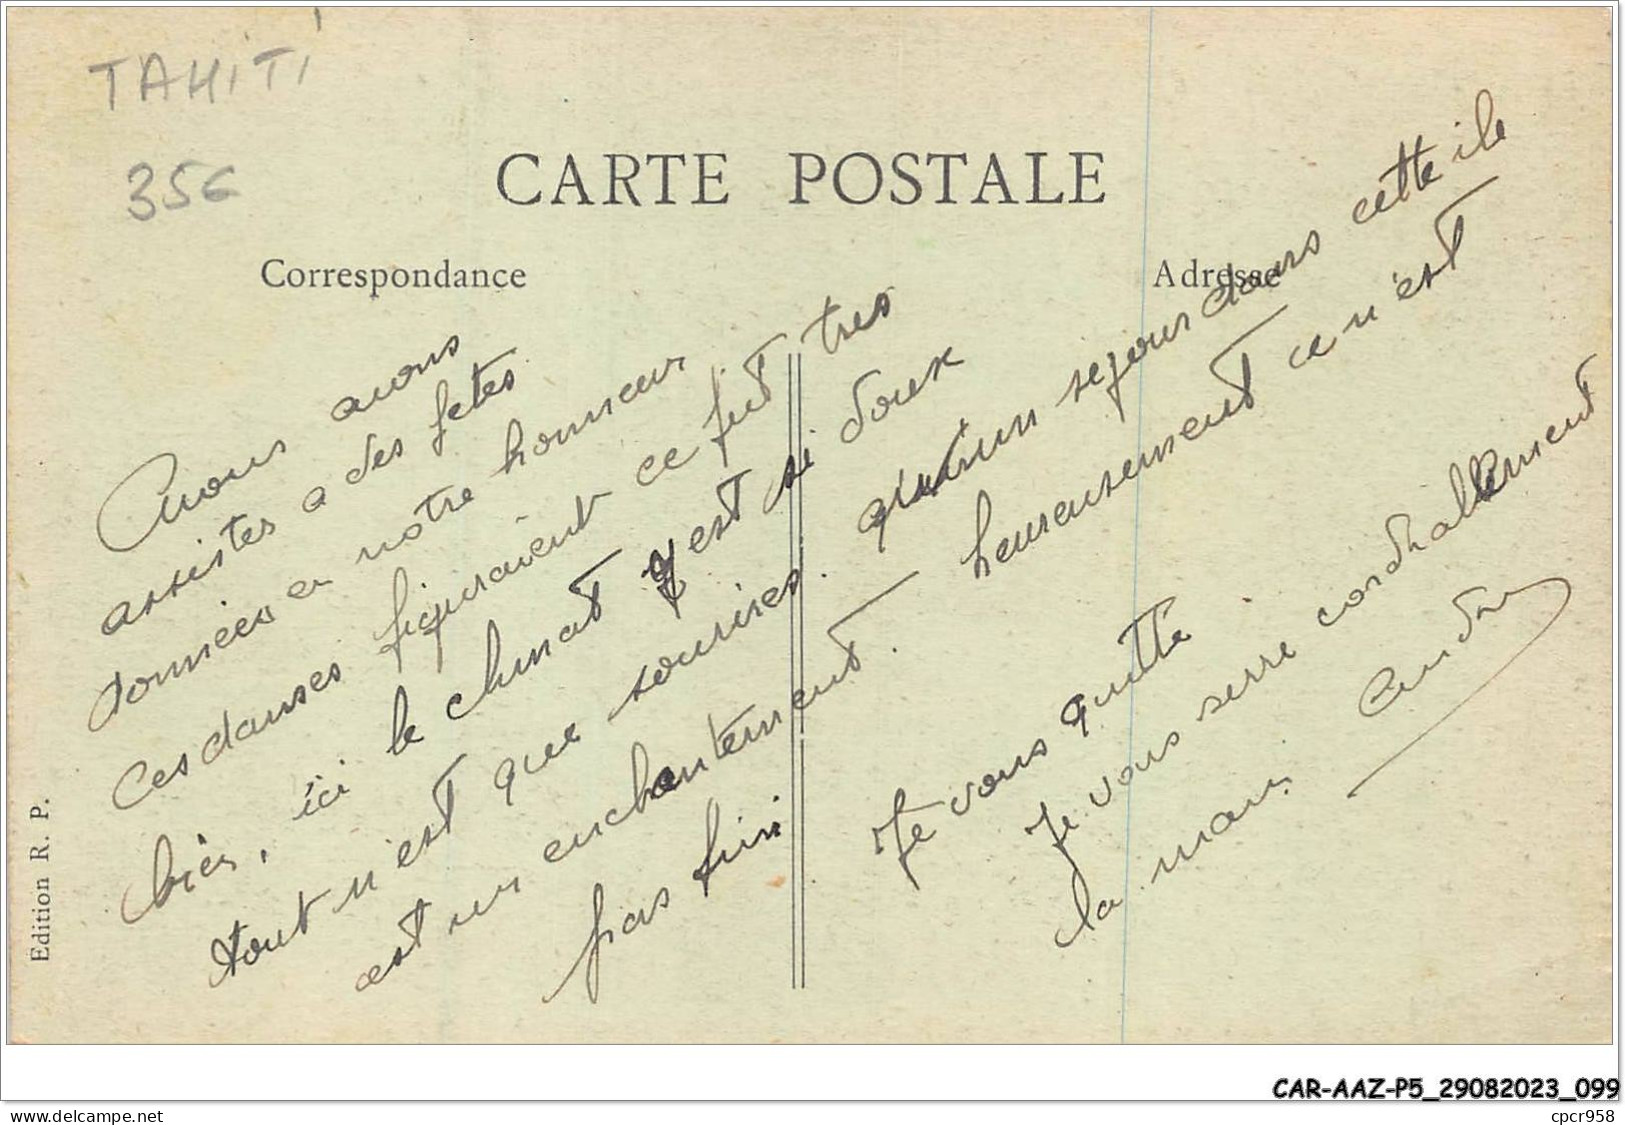 TAHITI
35€
CARTE POSTALE
Correspondance
Adresse
nous avons
assistes a des fetes
données en notre honneur
Ces danses figuraient ce fut tres
bien, ici le climat y est si doux
tout n'est que sourires. qu'un sejour dans cette ile
est un enchantement. heureusement ce n'est
pas fini
Je vous quitte
Je vous serre cordiallement
la main.
Edition R. P.
CAR-AAZ-P5_29082023_099
www.delcampe.net
cpcr958